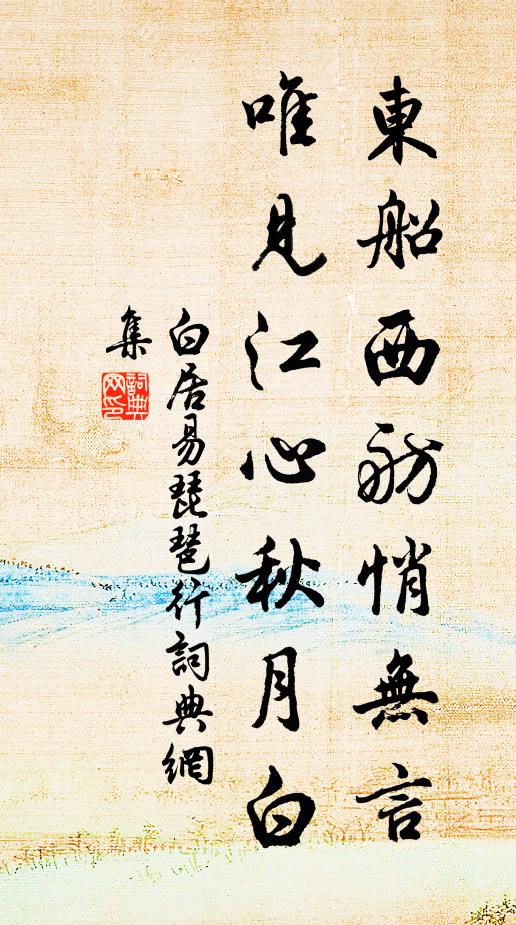 東船西舫悄無言
唯見江心秋月白
白居易琵琶行詞典網
集
詞典
网印